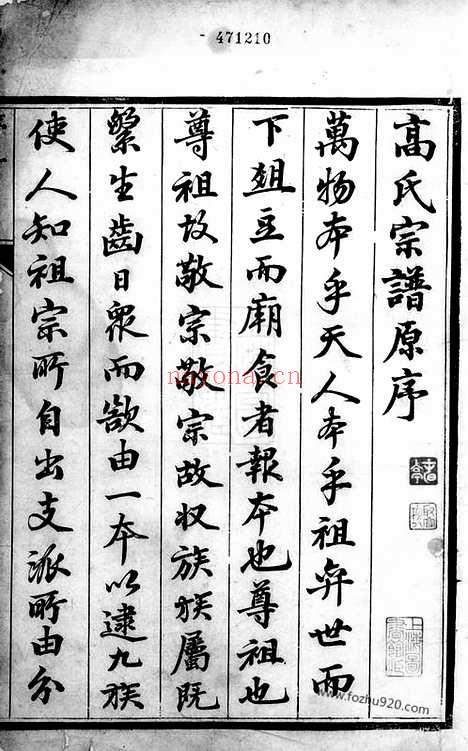 - 471210
高氏宗譜原序
萬物本乎天人本乎祖弈世而
下俎豆而廟食者報本也尊祖也
尊祖故敬宗敬宗故收族族屬既
繁生齒日衆而欲由一本以逮九族
使人知祖宗所自出支派所由分
nayonai.cn
www.fozhu920.com